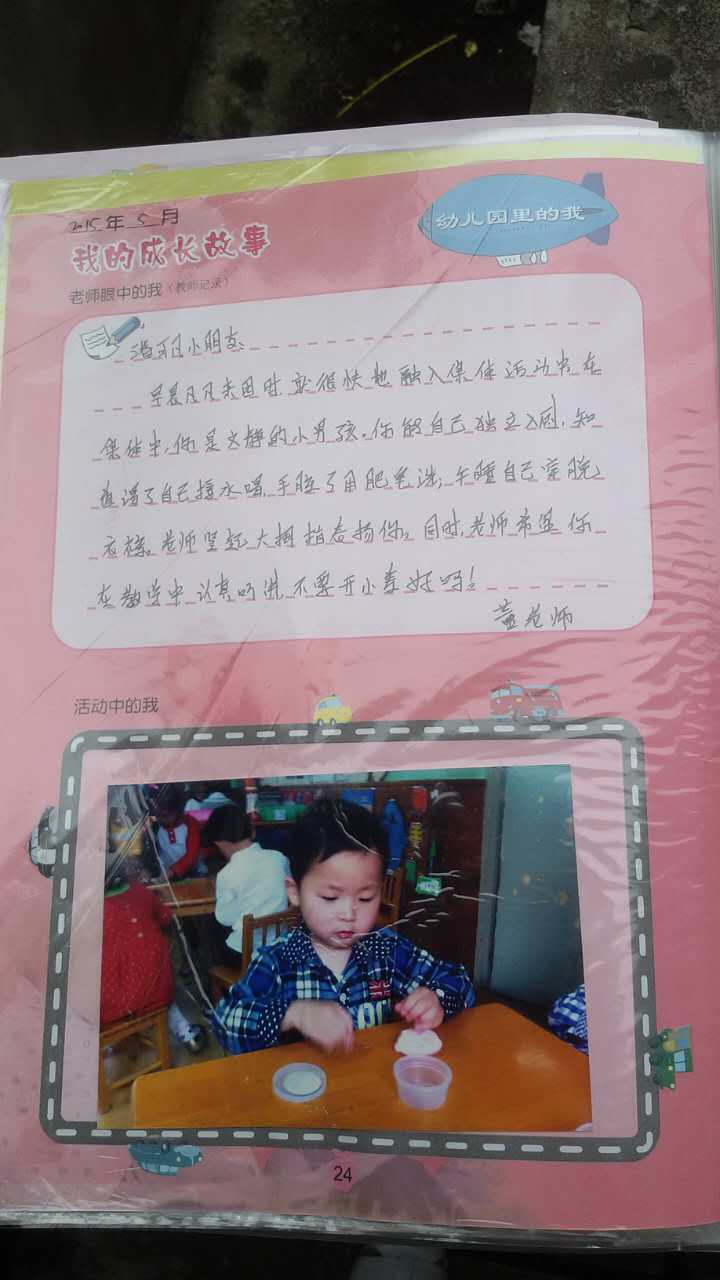 2015年5月
幼儿园里的我
我的成长故事
老师眼中的我（教师记录）
小朋友
早晨 来园时 就很快地融入集体活动当 在
集体中,你是文静的小男孩。你能自己独立入厕,知
道渴了自己接水喝,手脏了用肥皂洗;午睡自己穿脱
衣裤。老师竖起大拇指表扬你。同时,老师希望你
在教学中认真听讲 不要开小差好吗!
老师
活动中的我
24